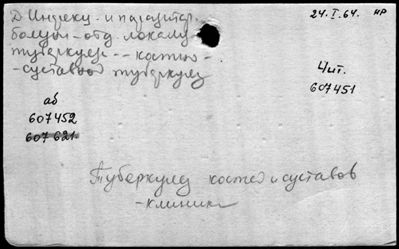 Д Инфекц. и паразитар.
болезн - отд. локализ.
туберкулез -- костно-
-суставной туберкулез
24.I.64. НР
Чит.
607451
аб
607452
607621
Туберкулез костей и суставов
-клиника